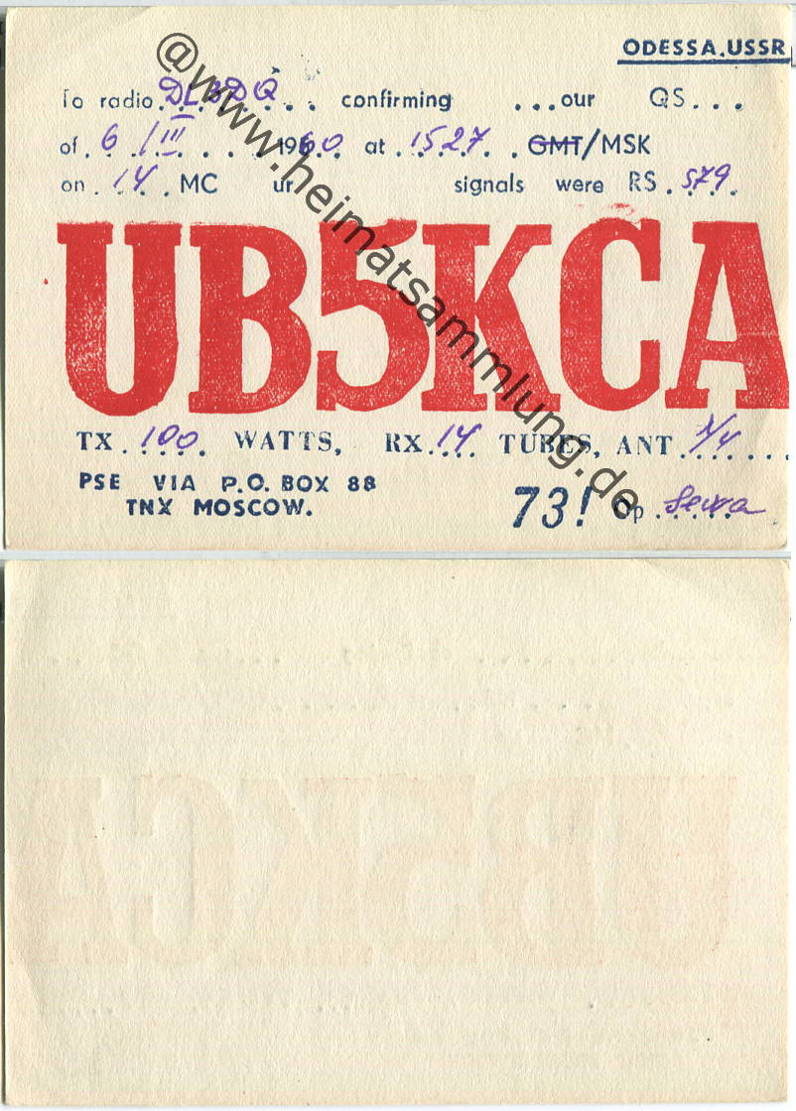 ODESSA.USSR
To radio. DL3DQ . . . confirming ...our QS...
of. 6 /III . . . 1960 at .1527. . GMT/MSK
on . 14 . MC ur signals were RS . 579.
UB5KCA
TX. 100. WATTS, RX. 14 TUBES, ANT
PSE VIA P.O. BOX 88
TNX MOSCOW.
73! Op . Sewa
@www.heimatsammlung.de